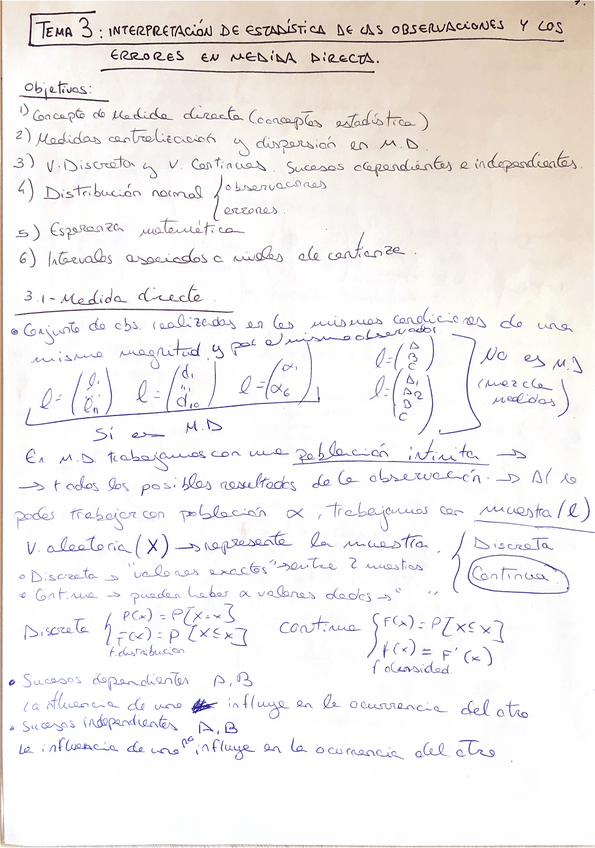 TEMA 3: INTERPRETACIÓN DE ESTADÍSTICA DE LAS OBSERVACIONES Y LOS
ERRORES EN MEDIDA DIRECTA.
Objetivos:
1) Concepto de Medida directa (conceptos estadística)
2) Medidas centralización y dispersión en M.D.
3) V. Discreta y V. Continuas. Sucesos dependientes e independientes.
4) Distribución normal { observaciones
errores.
5) Esperanza matemática
6) Intervalos asociados a niveles de confianza.
3.1- Medida directa.
• Conjunto de obs. realizadas en las mismas condiciones de una
misma magnitud y por el mismo observador
l = (l1 ... ln) l = (d1 ... d10) l = (α1 α6)
l = (A B C)
l = (A1 A2 B C)
No es M.D
(mezcla
medidas)
Sí es M.D
En M.D. trabajamos con una población infinita →
→ todos los posibles resultados de la observación. → Al no
poder trabajar con población α, trabajamos con muestra (l)
V. aleatoria (X) → representa la muestra. { Discreta
Continua.
• Discreta → "valores exactos" → entre 2 muestras
• Continua → pueden haber α valores dados → " "
Discreta { P(x) = P[X=x]
F(x) = P[X≤x]
f. distribución
continua { F(x) = P[X≤x]
f(x) = F'(x)
f densidad.
• Sucesos dependientes A, B
La influencia de uno influye en la ocurrencia del otro
• Sucesos independientes A, B
La influencia de uno no influye en la ocurrencia del otro.